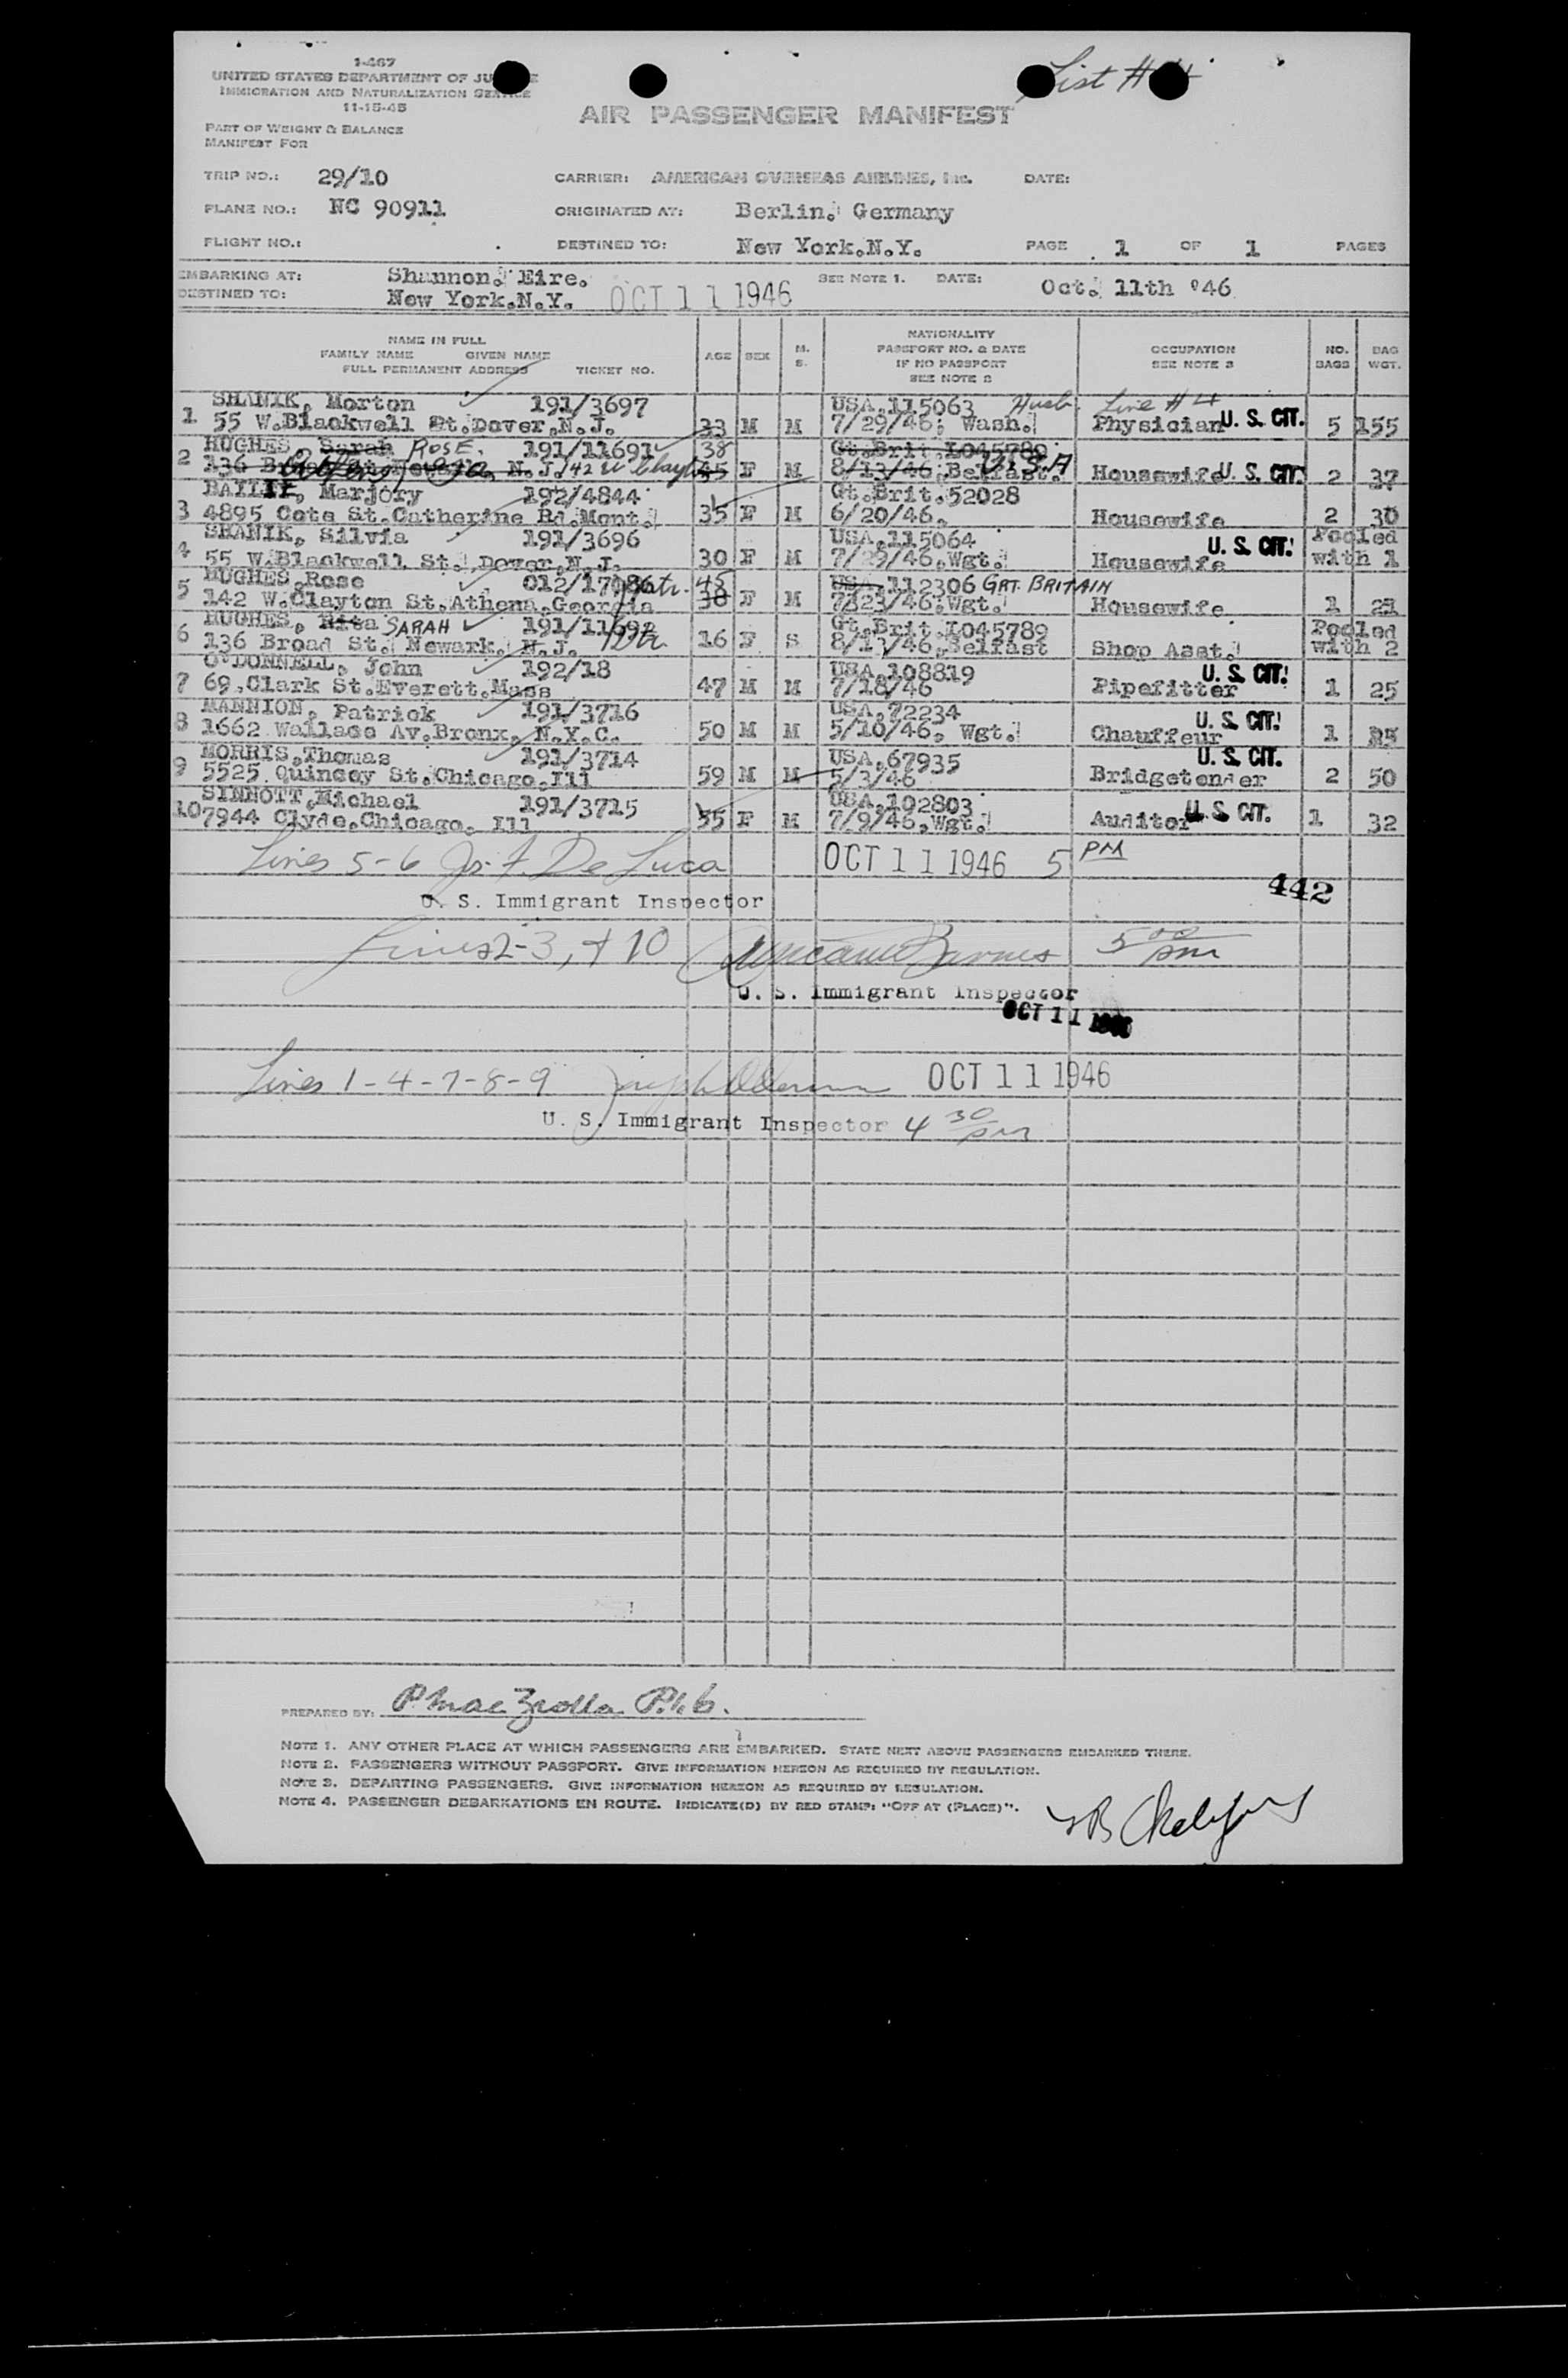 1-467
UNITED STATES DEPARTMENT OF JU E
IMMIGRATION AND NATURALIZATION SERVICE
11-15-45
List #
AIR PASSENGER MANIFEST
PART OF WEIGHT & BALANCE
MANIFEST FOR
TRIP NO.: 29/10 CARRIER: AMERICAN OVERSEAS AIRLINES, Inc. DATE:
PLANE NO.: NC 90911 ORIGINATED AT: Berlin. Germany
FLIGHT NO.: DESTINED TO: New York.N.Y. PAGE 1 OF 1 PAGES
EMBARKING AT: Shannon. Eire. SEE NOTE 1. DATE: Oct. 11th '46
DESTINED TO: New York.N.Y. OCT 11 1946
NAME IN FULL
FAMILY NAME GIVEN NAME
FULL PERMANENT ADDRESS TICKET NO. AGE SEX M. S. NATIONALITY PASSPORT NO. & DATE IF NO PASSPORT SEE NOTE 2 OCCUPATION SEE NOTE 3 NO. BAGS BAG WGT.
SHANIK, Morton 191/3697 USA.115063 Husb. Line #4
1 55 W.Blackwell St.Dover.N.J. 33 M M 7/29/46; Wash. Physician U. S. CIT. 5 155
HUGHES, Sarah ROSE. 191/11691 38 Gt.Brit.L045789
2 136 N.J. 142 W Clayt 45 F M 8/13/46.Belfast. U.S.A Housewife U. S. CIT. 2 37
Marjory 192/4844 Gt.Brit.52028
3 4895 Cote St.Catherine Rd.Mont. 35 F M 6/20/46. Housewife 2 30
SHANIK, Silvia 191/3696 USA.115064 U. S. CIT. Pooled
4 55 W.Blackwell St. Dover.N.J. 30 F M 7/29/46.Wgt. Housewife with 1
HUGHES.Rose 45 USA.112306 GRT. BRITAIN
5 142 W.Clayton St.Athena.Georgia 38 F M 7/23/46.Wgt. Housewife 1
HUGHES, Rita SARAH 191/11692 Gt.Brit.L045789 Pooled
6 136 Broad St. Newark. N.J. 16 F S 8/13/46.Belfast Shop Asst. with 2
O'DONNELL, John 192/18 USA.108819 U. S. CIT.
7 69.Clark St.Everett.Mass 47 M M 7/18/46 Pipefitter 1 25
MANNION, Patrick 191/3716 USA.72234 U. S. CIT.
8 1662 Wallace Av.Bronx. N.Y.C. 50 M M 5/10/46. Wgt. Chauffeur 1
MORRIS.Thomas 191/3714 USA.67935 U. S. CIT.
9 5525 Quincey St.Chicago.Ill 59 M M 5/3/46 Bridgetender 2 50
SINNOTT.Michael 191/3715 USA.102803
10 7944 Clyde.Chicago. Ill 35 F M 7/9/46.Wgt. Auditor U. S. CIT. 1 32
Lines 5-6 De Luca OCT 11 1946 5 PM
U. S. Immigrant Inspector 442
Lines 2-3, + 10 Barnes 5 00 pm
U. S. Immigrant Inspector
OCT 11
Lines 1-4-7-8-9 OCT 11 1946
U. S. Immigrant Inspector 4 30 pm
PREPARED BY:
NOTE 1. ANY OTHER PLACE AT WHICH PASSENGERS ARE EMBARKED. STATE NEXT ABOVE PASSENGERS EMBARKED THERE.
NOTE 2. PASSENGERS WITHOUT PASSPORT. GIVE INFORMATION HEREON AS REQUIRED BY REGULATION.
NOTE 3. DEPARTING PASSENGERS. GIVE INFORMATION HEREON AS REQUIRED BY REGULATION.
NOTE 4. PASSENGER DEBARKATIONS EN ROUTE. INDICATE(D) BY RED STAMP: "OFF AT (PLACE)".